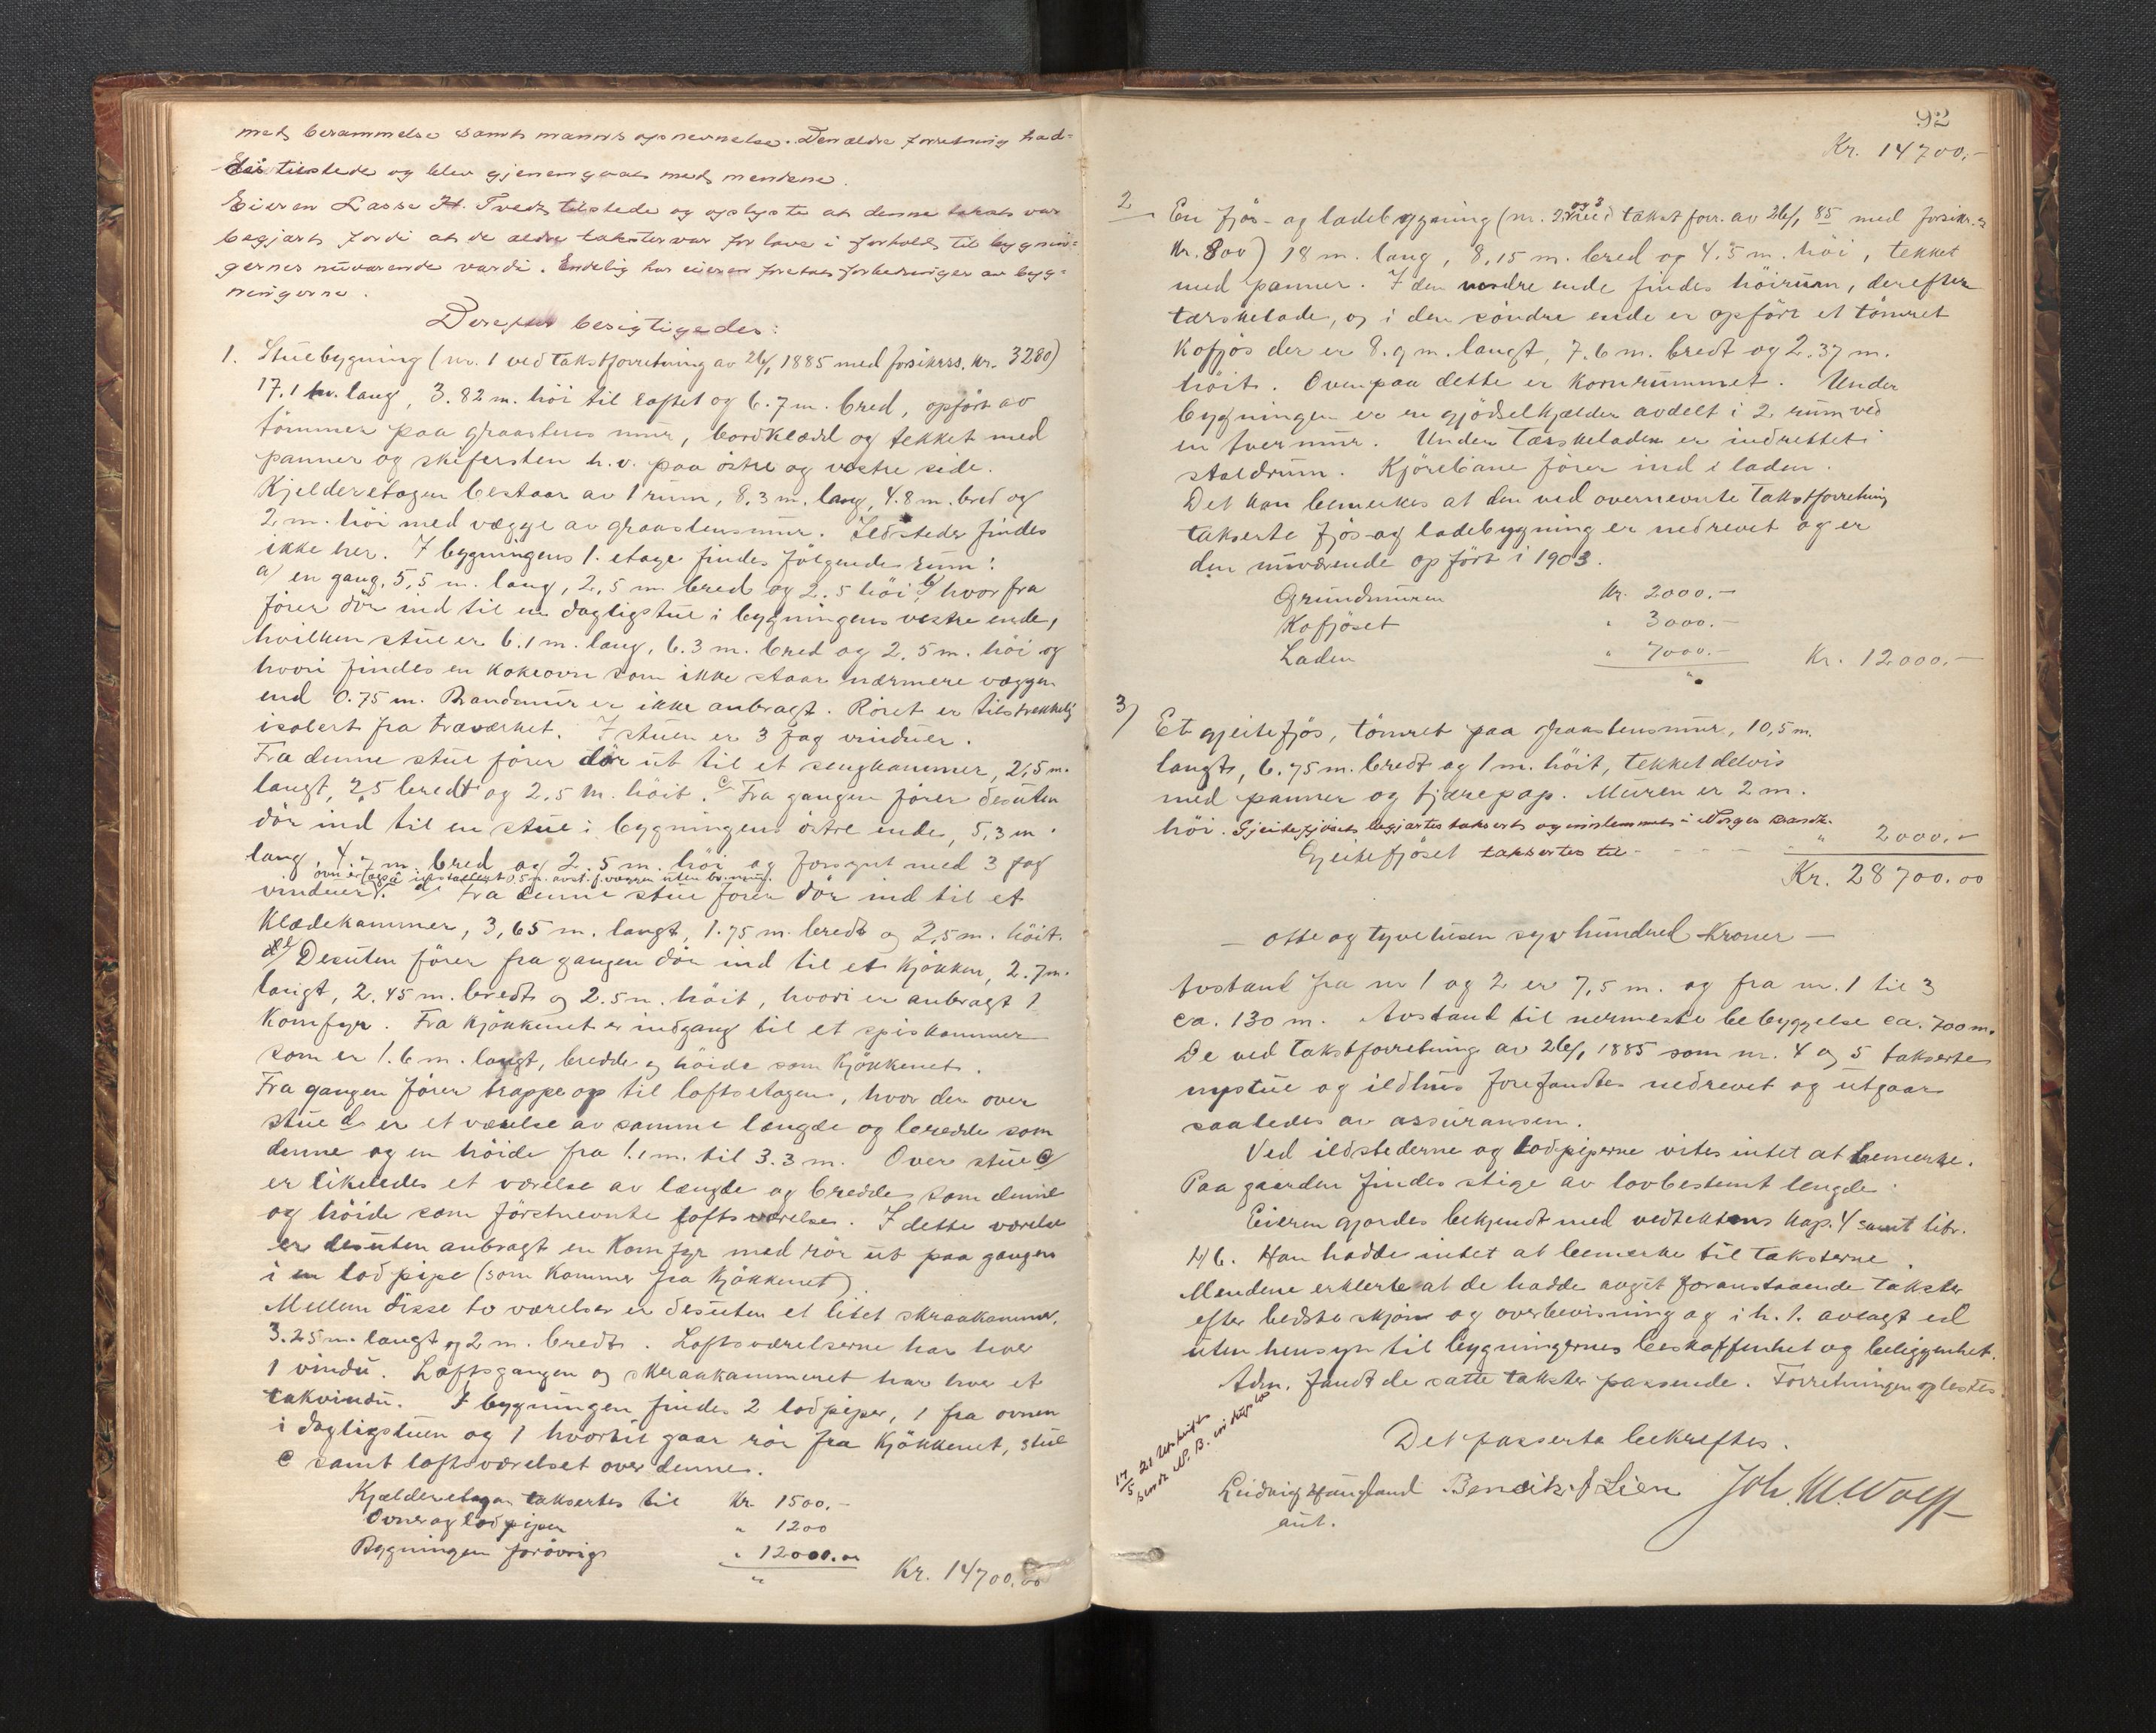 med berammelse samt mands opnevnelse. Den ældre forretning had-
des tilstede og blev gjenemgaat med mendene.
Eieren Lasse H. Tvedt tilstede og oplyste at denne takst var
begjært fordi at de ældre takster var for lave i forhold til bygnin-
gernes nuværende værdi. Endelig har eieren foretat forbedringer av byg-
ningerne.
Derefter besigtigedes:
1. Stuebygning (nr. 1 ved takstforretning av 26/1 1885 med forsikrss. kr. 3280)
17.1 m. lang, 3.82 m. höi til loftet og 6.7 m. bred, opfört av
tömmer paa graastens mur, bordklædd og tekket med
panner og skifersten h.v. paa östre og vestre side.
Kjelderetagen bestaar av 1 rum, 8.3 m. lang, 4.8 m. bred og
2 m. höi med vægge av graastensmur. Ildsteder findes
ikke her. I bygningens 1. etage findes fölgende rum:
a/ en gang, 5,5 m. lang, 2,5 m bred og 2.5 höi b/ hvorfra
förer dör ind til en dagligstue i bygningens vestre ende,
hvilken stue er 6.1 m. lang, 6.3 m. bred og 2,5 m. höi og
hvori findes en kokeovn som ikke staar nærmere væggen
end 0.75 m. Brandmur er ikke anbragt. Röret er tilstrekkelig
isolert fra træverket. I stuen er 3 fag vinduer.
Fra denne stue förer dör ut til et sengkammer, 2,5 m.
langt, 2,5 bredt og 2,5 m. höit. c/ Fra gangen förer desuten
dör ind til en stue i bygningens östre ende, 5,3 m.
lang, 4. m. bred og 2.5 m. höi og forsynt med 3 fag
ovn er ogsaa 0.5 m. avst. f. væggen uten br.mur.
vinduer. d/ Fra denne stue förer dör ind til et
Klædekammer, 3,65 m. langt, 1.75 m. bredt og 2,5 m. höit.
e/ Desuten förer fra gangen dör ind til et kjökken, 2.7 m.
langt, 2,45 m. bredt og 2.5 m. höit, hvori er anbragt 1
Komfyr. Fra kjökkenet er indgang til et spiskammer
som er 1.6 m. langt, bredde og höide som kjökkenet.
Fra gangen förer trappe op til loftsetagen, hvor der over
stue d er et værelse av samme længde og bredde som
denne og en höide fra 1.1 m. til 3.3 m. Over stue c/
er likeledes et værelse av længde og bredde som denne
og höide som förstnevnte loftsværelse. I dette værelse
er desuten anbragt en Komfyr med rör ut paa gangen
i en lodpipe (som kommer fra kjökkenet)
Mellem disse to værelser er desuten et litet skraakammer,
3.25 m. langt og 2 m. bredt. Loftsværelserne har hver
1 vindu. Loftsgangen og skraakammeret har hver et
takvindu. I bygningen findes 2 lodpiper, 1 fra ovnen
i dagligstuen og 1 hvortil gaar rör fra kjökkenet, stue
c samt loftsværelset over denne.
Kjælderetagen taksertes til Kr. 1500.-
Ovner og lodpiper " 1200
Bygningen forövrig " 12000.00
" Kr. 14700.00
92
Kr. 14700.-
2 En fjös- og ladebygning (nr. 2 og 3 ved takstforr. av 26/1 85 med forsikr.s
Kr. 800) 18 m. lang, 8,15 m. bred og 4.5 m. höi, tekket
med panner. I den nordre ende findes höirum, derefter
tærskelade, og i den söndre ende er opfört et tömret
Kofjös der er 8.9 m. langt, 7.6 m. bredt og 2.37 m.
höit. Ovenpaa dette er kornrummet. Under
bygningen er en gjödselkjælder avdelt i 2 rum ved
en tvermur. Under tærskeladen er indrettet
staldrum. Kjörebane förer ind i laden.
Det kan bemerkes at den ved overnevnte takstforretning
takserte fjös- og ladebygning er nedrevet og er
den nuværende opfört i 1903.
Grundmuren Kr. 2000.-
Kofjöset " 3000.-
Laden " 7000.- Kr. 12000.-
"
3) Et gjeitefjös, tömret paa graastensmur, 10,5 m.
langt, 6.75 m. bredt og 1 m. höit, tekket delvis
med panner og tjærepap. Muren er 2 m.
höi. Gjeitefjöset begjærtes taksert og indlemmet i Norges Brandk.
Gjeitefjöset taksertes til - - - - " 2000.-
Kr. 28700.00
— otte og tyve tusen syv hundred kroner —
Avstand fra nr 1 og 2 er 7,5 m. og fra nr. 1 til 3
ca. 130 m. Avstand til nermeste bebyggelse ca. 700 m.
De ved takstforretning av 26/1 1885 som nr. 4 og 5 takserte
nystue og ildhus forefandtes nedrevet og utgaar
saaledes av assuransen.
Ved ildstederne og lodpiperne vites intet at bemerke.
Paa gaarden findes stige av lovbestemt lengde.
Eieren gjordes bekjendt med vedtektens kap. 4 samt litr.
H 6. Han hadde intet at bemerke til taksterne.
Mendene erklerte at de hadde avgit foranstaaende takster
efter bedste skjön og overbevisning og i h. t. avlagt ed
uten hensyn til bygningernes beskaffenhet og beliggenhet.
Adm. fandt de satte takster passende. Forretningen oplestes.
Det passerte bekreftes.
17/5 21 Utskrift
sendt N. B.
Ludvig Haugland Bendik J Lien Joh. M. Wolff
aut.